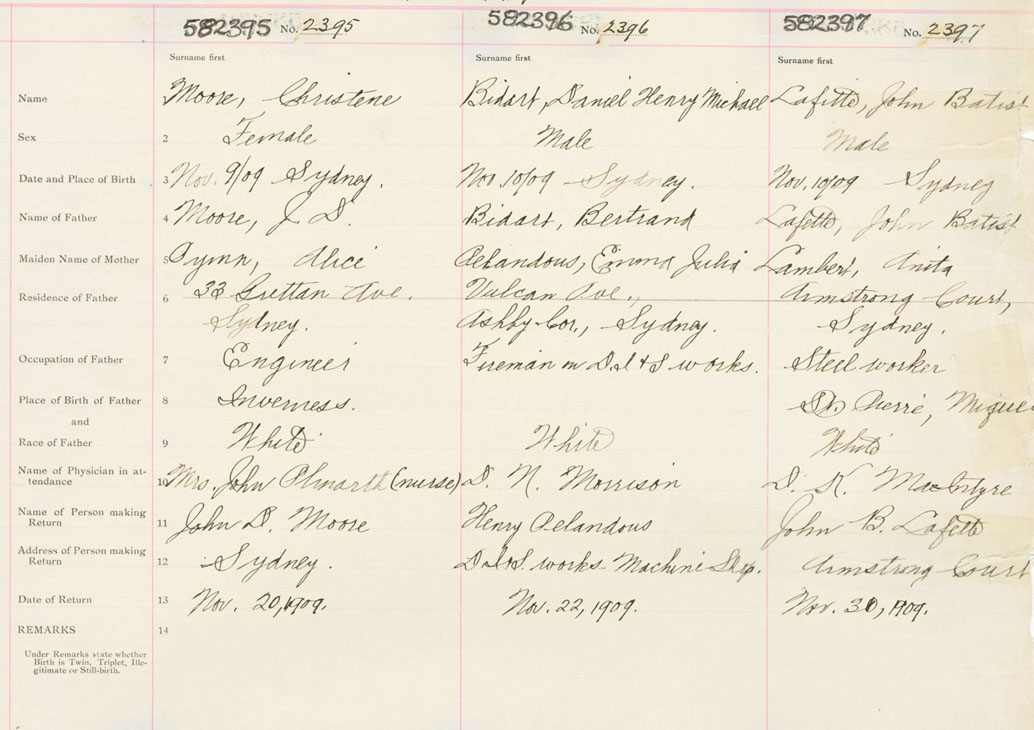 582395 No. 2395 582396 No. 2396 582397 No. 2397
Surname first Surname first Surname first
Name Moore, Christene Bidart, Daniel Henry Michael Lafitte, John Batist
Sex 2 Female Male Male
Date and Place of Birth 3 Nov. 9/09 Sydney. Nov. 10/09 Sydney. Nov. 10/09 Sydney
Name of Father 4 Moore, J. D. Bidart, Bertrand Lafette, John Batist
Maiden Name of Mother 5 Alice Pelandous, Emma Julia Lambert, Anita
Residence of Father 6 33 Ave. Vulcan Ave., Armstrong Court,
Sydney. Ashby Cor., Sydney. Sydney.
Occupation of Father 7 Engineer Fireman on D.I & S works. Steel worker
Place of Birth of Father 8 Inverness. St. Pierre, Mique
and
Race of Father 9 White White White
Name of Physician in at-
tendance 10 Mrs. John (nurse) D. N. Morrison D. K. MacIntyre
Name of Person making
Return 11 John D. Moore Henry Pelandous John B. Lafette
Address of Person making
Return 12 Sydney. D.I&S. works Machine Shop. Armstrong Court
Date of Return 13 Nov. 20, 1909. Nov. 22, 1909. Nov. 30, 1909.
REMARKS 14
Under Remarks state whether
Birth is Twin, Triplet, Ille-
gitimate or Still-birth.